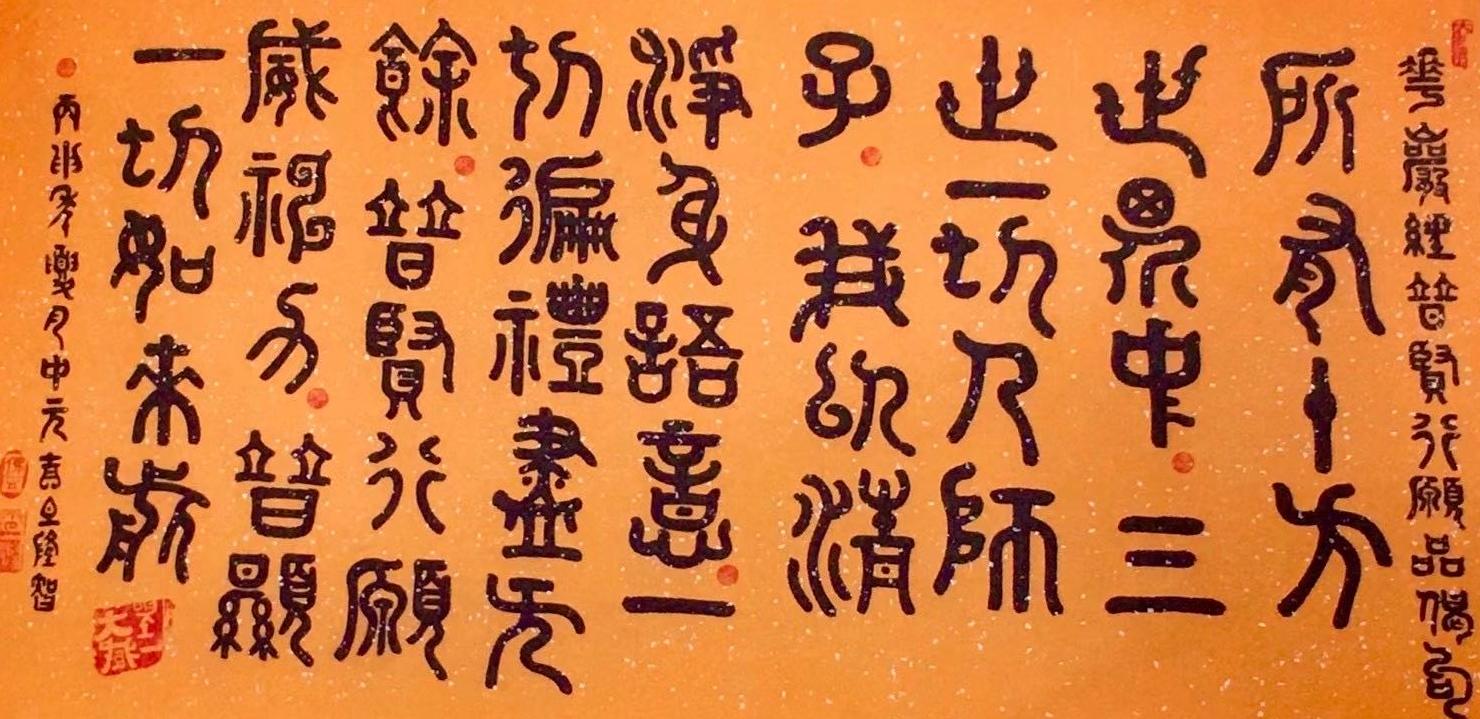 華嚴經普賢行願品偈句
所有十方
世界中三
世一切人師
子我以清
淨身語意一
切徧禮盡无
餘普賢行願
威神力普顯
一切如來前
丙申年月中元吉旦隆智